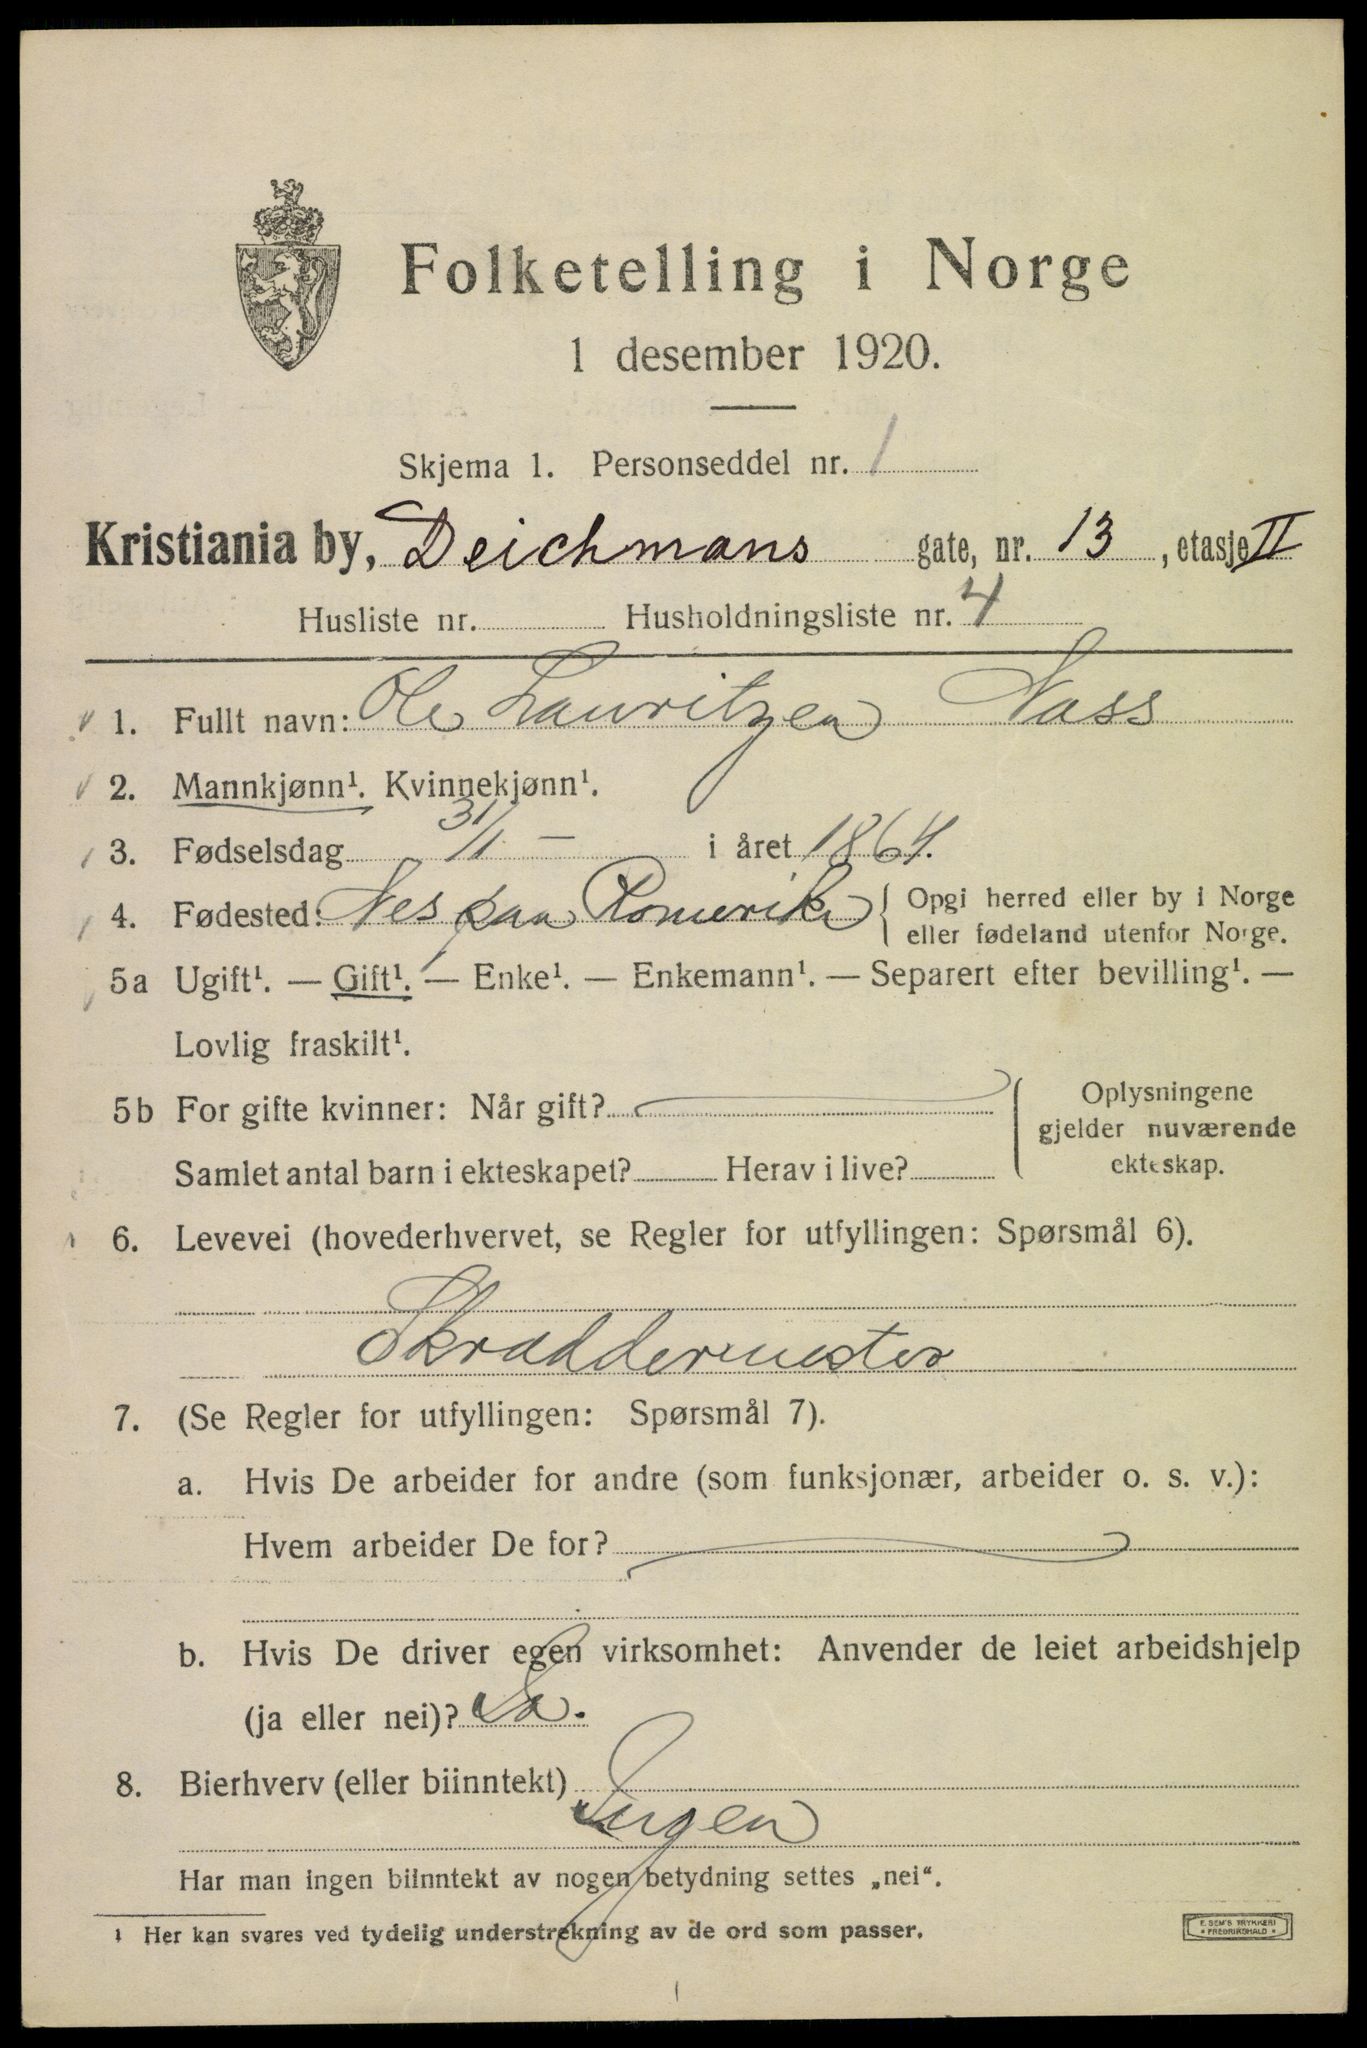 Folketelling i Norge
1 desember 1920.
Skjema 1. Personseddel nr. 1
Kristiania by, Deichmans gate, nr. 13, etasje II
Husliste nr. Husholdningsliste nr. 4
1. Fullt navn: Ole Lauritzen Nass
2. Mannkjønn¹. Kvinnekjønn¹.
3. Fødselsdag 31/1 - i året 1864.
4. Fødested: Nes paa Romerike { Opgi herred eller by i Norge
eller fødeland utenfor Norge.
5a Ugift¹. — Gift¹. — Enke¹. — Enkemann¹. — Separert efter bevilling¹. —
Lovlig fraskilt¹.
5b For gifte kvinner: Når gift?
Samlet antal barn i ekteskapet? Herav i live?
Oplysningene
gjelder nuværende
ekteskap.
6. Levevei (hovederhvervet, se Regler for utfyllingen: Spørsmål 6).
Skræddermester
7. (Se Regler for utfyllingen: Spørsmål 7).
a. Hvis De arbeider for andre (som funksjonær, arbeider o. s. v.):
Hvem arbeider De for?
b. Hvis De driver egen virksomhet: Anvender de leiet arbeidshjelp
(ja eller nei)? Ja.
8. Bierhverv (eller biinntekt)
Ingen
Har man ingen biinntekt av nogen betydning settes „nei“.
1 Her kan svares ved tydelig understrekning av de ord som passer.
E. SEM'S TRYKKERI
* FREDRIKSHALD *